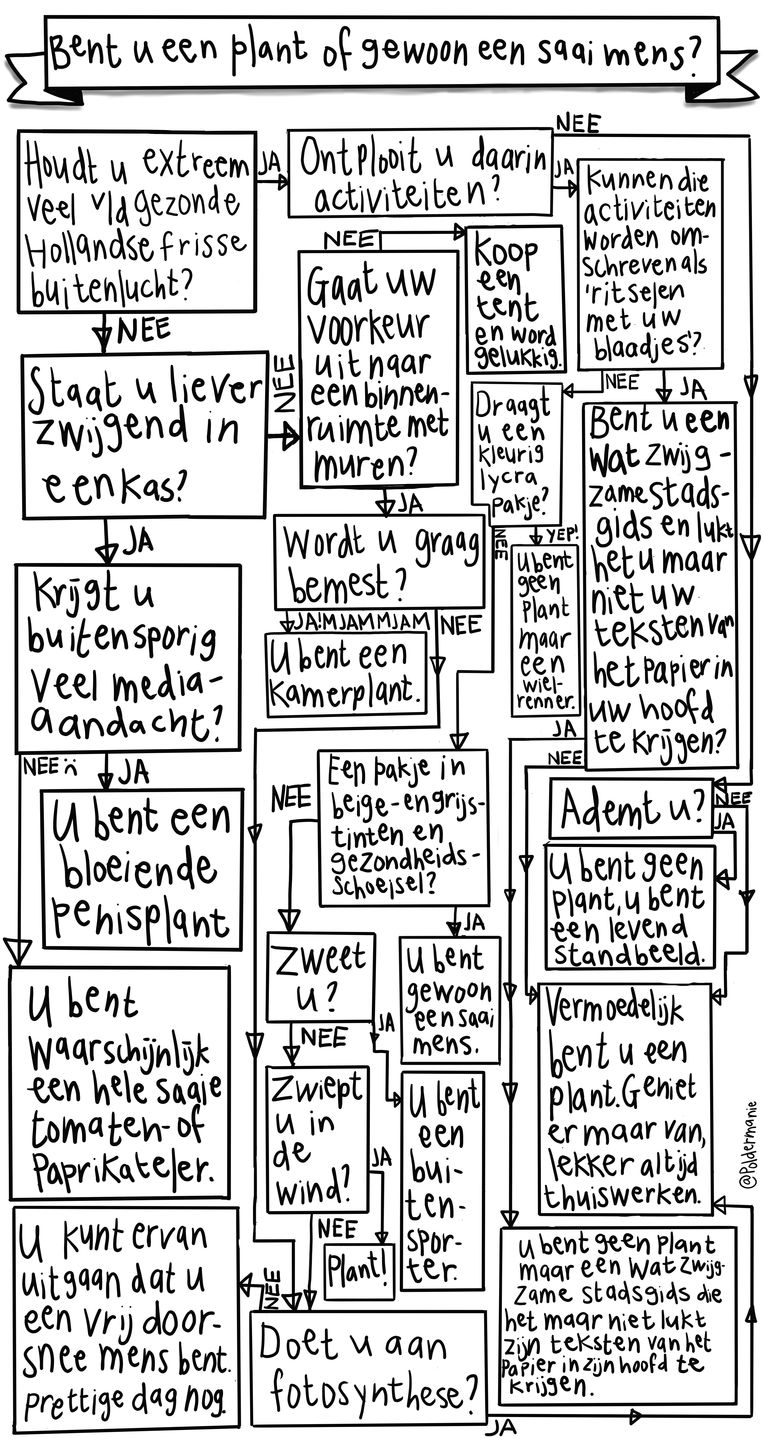 Bent u een plant of gewoon een saai mens?
Houdt u extreem
veel v/d gezonde
Hollandse frisse
buitenlucht?
JA
Ontplooit u daarin
activiteiten?
NEE
JA
Kunnen die
activiteiten
worden om-
schreven als
'ritselen
met uw
blaadjes'?
NEE
JA
NEE
Staat u liever
zwijgend in
een kas?
NEE
JA
Gaat uw
voorkeur
uit naar
een binnen-
ruimte met
muren?
NEE
Koop
een
tent
en word
gelukkig.
JA
Draagt
u een
kleurig
lycra
pakje?
YEP!
NEE
U bent
geen
plant
maar
een
wiel-
renner.
Bent u een
wat zwijg-
zame stads-
gids en lukt
het u maar
niet uw
teksten van
het papier in
uw hoofd
te krijgen?
JA
NEE
Wordt u graag
bemest?
JA!MJAMMJAM
NEE
U bent een
kamerplant.
Krijgt u
buitensporig
veel media-
aandacht?
NEE :(
JA
U bent een
bloeiende
penisplant
U bent
waarschijnlijk
een hele saaie
tomaten- of
paprikateler.
Een pakje in
beige- en grijs-
tinten en
gezondheids-
schoeisel?
NEE
JA
U bent
gewoon
een saai
mens.
Zweet
u?
JA
NEE
U bent
een
bui-
ten-
spor-
ter.
Zwiept
u in
de
wind?
JA
NEE
Plant!
Ademt u?
NEE
JA
U bent geen
plant, u bent
een levend
standbeeld.
Vermoedelijk
bent u een
plant. Geniet
er maar van,
lekker altijd
thuiswerken.
U bent geen plant
maar een wat zwijg-
zame stadsgids die
het maar niet lukt
zijn teksten van het
papier in zijn hoofd te
krijgen.
Doet u aan
fotosynthese?
NEE
JA
U kunt ervan
uitgaan dat u
een vrij door-
snee mens bent.
Prettige dag nog.
@Poldermanie